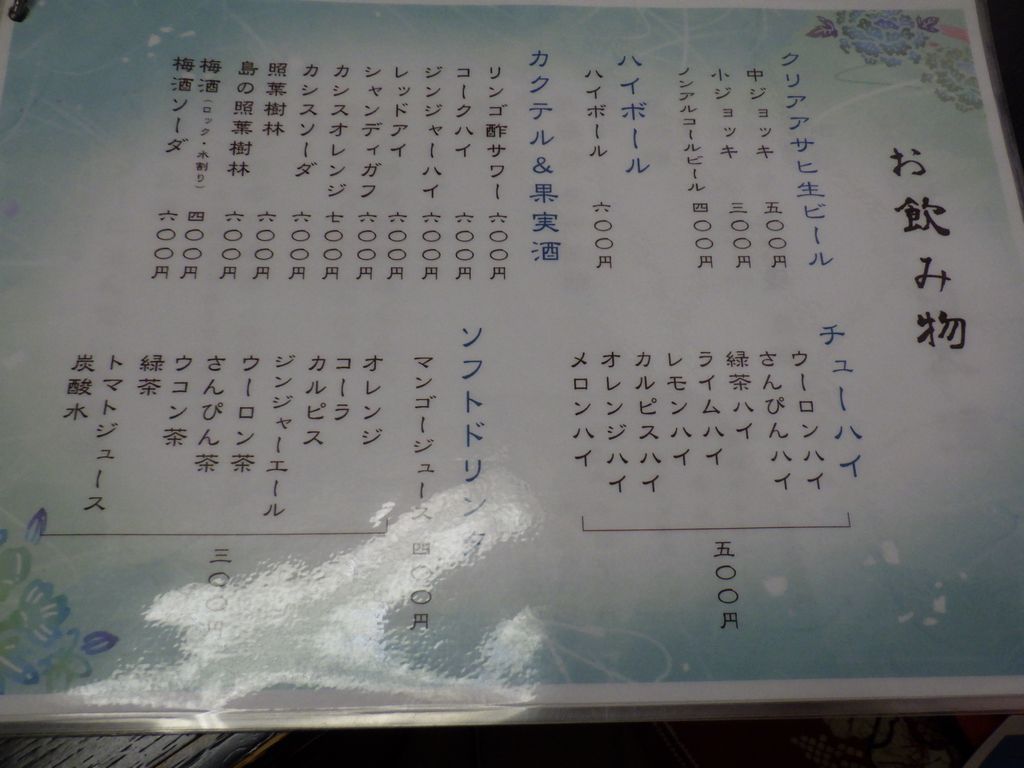 お飲み物
クリアアサヒ生ビール
中ジョッキ 五〇〇円
小ジョッキ 三〇〇円
ノンアルコールビール 四〇〇円
ハイボール
ハイボール 六〇〇円
カクテル&果実酒
リンゴ酢サワー 六〇〇円
コークハイ 六〇〇円
ジンジャーハイ 六〇〇円
レッドアイ 六〇〇円
シャンディガフ 六〇〇円
カシスオレンジ 七〇〇円
カシスソーダ 六〇〇円
照葉樹林 六〇〇円
島の照葉樹林 六〇〇円
梅酒(ロック・水割り) 四〇〇円
梅酒ソーダ 六〇〇円
チューハイ
ウーロンハイ
さんぴんハイ
緑茶ハイ
ライムハイ
レモンハイ
カルピスハイ
オレンジハイ
メロンハイ
五〇〇円
ソフトドリンク
マンゴージュース 四〇〇円
オレンジ
コーラ
カルピス
ジンジャーエール
ウーロン茶
さんぴん茶
ウコン茶
緑茶
トマトジュース
炭酸水
三〇〇円